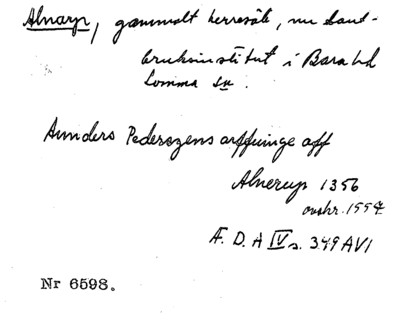 Alnarp, gammalt herresäte, nu lant-
bruksinstitut i Bara hd
Lomma sn.
Anders Pederszens arffuinge aff
Alnerup 1356
avskr. 1554.
Æ. D. A IV s. 349 AVI
Nr 6598.